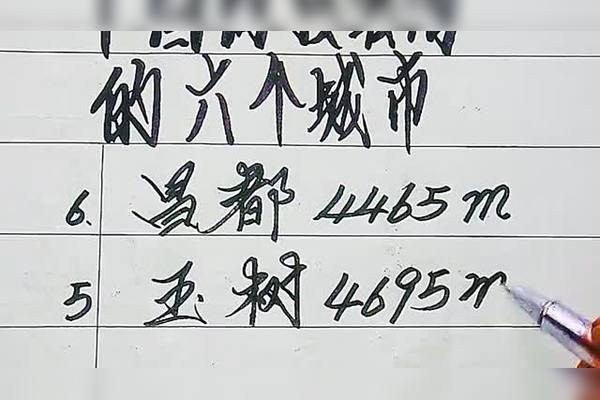 的六个城市
6. 昌都 4465m
5 玉树 4695m